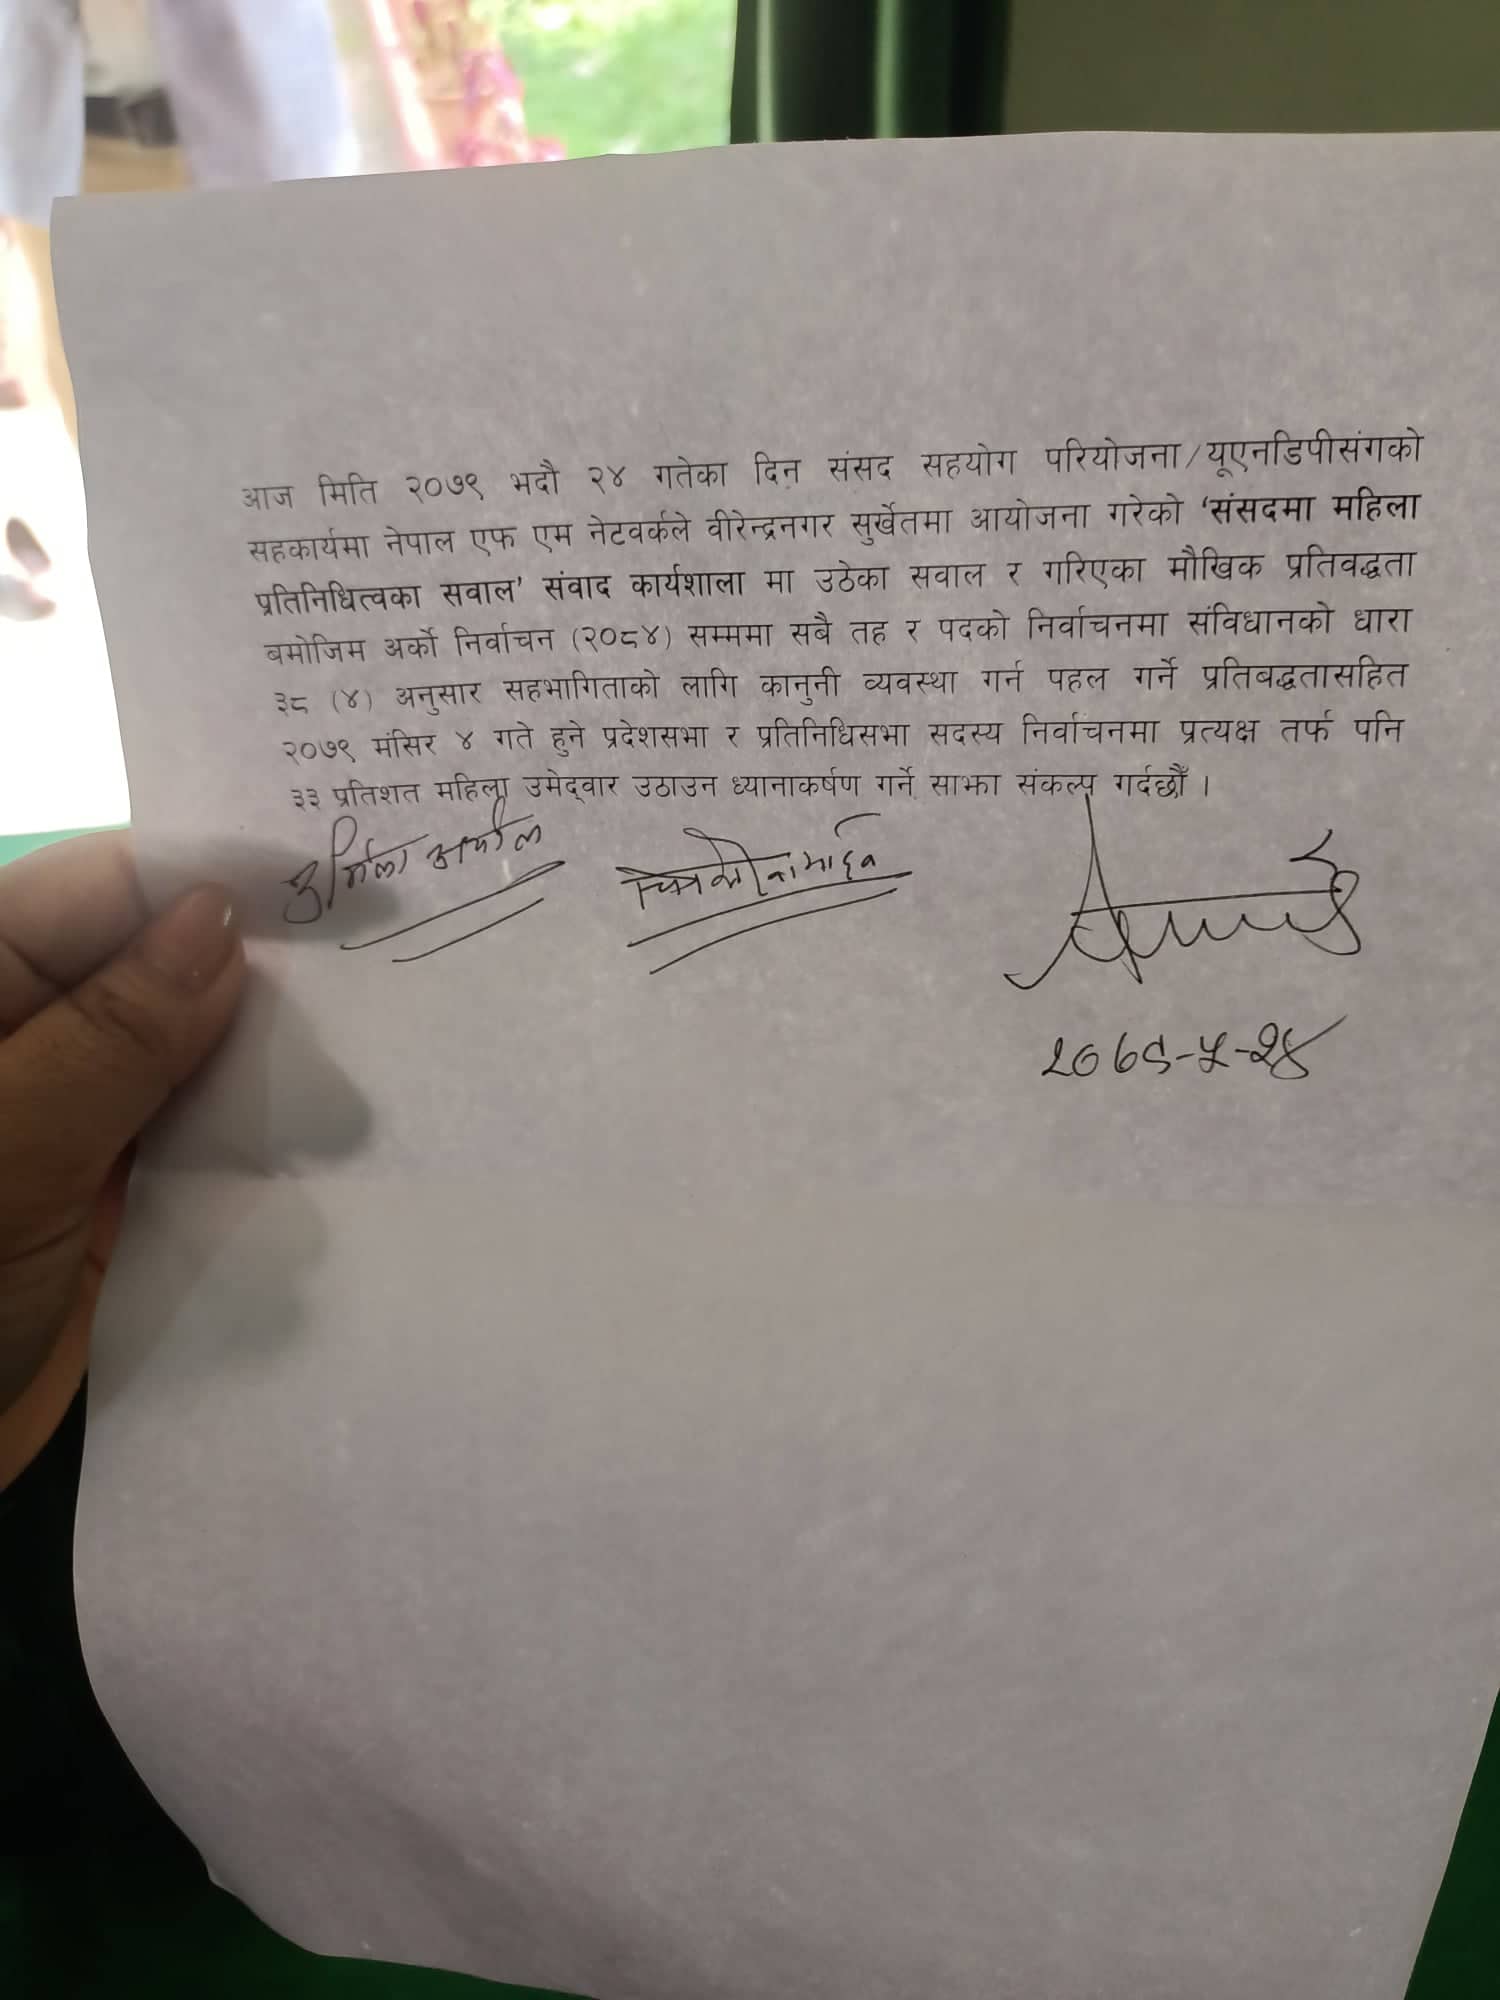 आज मिति २०७९ भदौ २४ गतेका दिन संसद सहयोग परियोजना/यूएनडिपीसंगको
सहकार्यमा नेपाल एफ एम नेटवर्कले वीरेन्द्रनगर सुर्खेतमा आयोजना गरेको 'संसदमा महिला
प्रतिनिधित्वका सवाल' संवाद कार्यशाला मा उठेका सवाल र गरिएका मौखिक प्रतिवद्धता
बमोजिम अर्को निर्वाचन (२०८४) सम्ममा सबै तह र पदको निर्वाचनमा संविधानको धारा
३८ (४) अनुसार सहभागिताको लागि कानुनी व्यवस्था गर्न पहल गर्ने प्रतिबद्धतासहित
२०७९ मंसिर ४ गते हुने प्रदेशसभा र प्रतिनिधिसभा सदस्य निर्वाचनमा प्रत्यक्ष तर्फ पनि
३३ प्रतिशत महिला उमेद्वार उठाउन ध्यानाकर्षण गर्ने साझा संकल्प गर्दछौँ ।
उर्मिला अर्याल
२०७९-५-२४